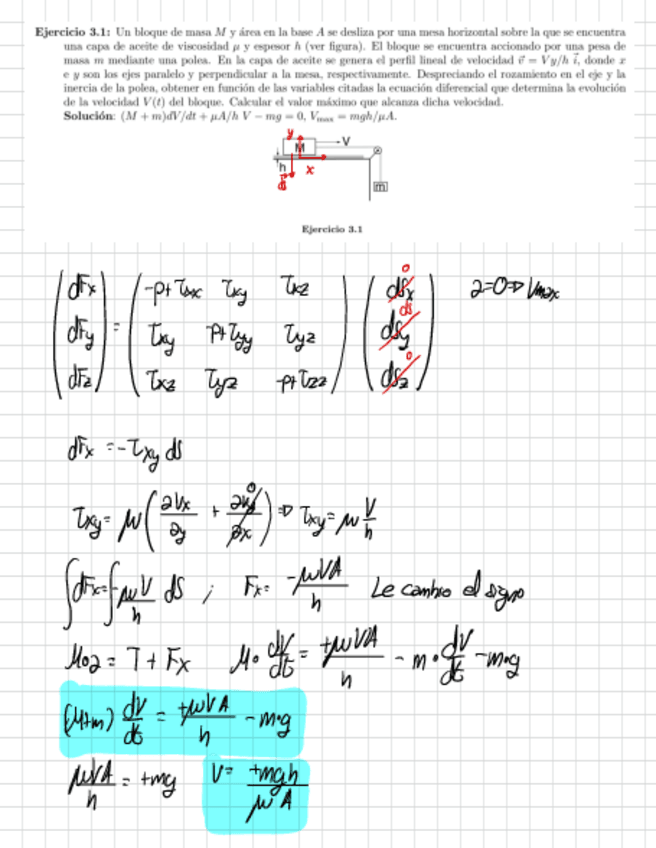 Ejercicio 3.1: Un bloque de masa M y área en la base A se desliza por una mesa horizontal sobre la que se encuentra
una capa de aceite de viscosidad μ y espesor h (ver figura). El bloque se encuentra accionado por una pesa de
masa m mediante una polea. En la capa de aceite se genera el perfil lineal de velocidad v⃗ = Vy/h i⃗, donde x
e y son los ejes paralelo y perpendicular a la mesa, respectivamente. Despreciando el rozamiento en el eje y la
inercia de la polea, obtener en función de las variables citadas la ecuación diferencial que determina la evolución
de la velocidad V(t) del bloque. Calcular el valor máximo que alcanza dicha velocidad.
Solución: (M + m)dV/dt + μA/h V − mg = 0, Vmax = mgh/μA.
y
M
V
h
x
m
Ejercicio 3.1
dFx -p+τxx τxy τxz dSx 0 a=0⇒Vmax
dFy = τxy p+τyy τyz dSy ds
dFz τxz τyz -p+τzz dSz 0
dFx = -τxy ds
τxy = μ(∂Vx/∂y + ∂Vy/∂x 0) ⇒ τxy = μ V/h
∫dFx = ∫-μV/h ds ; Fx = -μVA/h Le cambio el signo
M·a = T + Fx M·dV/dt = +μVA/h - m·dV/dt - m·g
(M+m) dV/dt = +μVA/h - m·g
μVA/h = +mg V = +mgh/μA